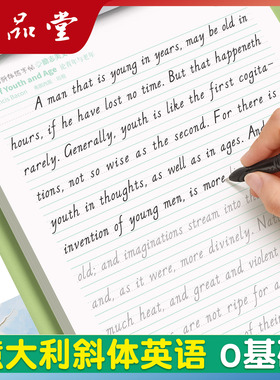 品堂
Youth and Age
A man that is young in years, may be old in
hours, if he have lost no time. But that happeneth
rarely. Generally, youth is like the first cogita-
tions, not so wise as the second. For there is
youth in thoughts, as well as in ages. And
invention of young men, is more
old; and imaginations stream into the
and, as it were, more divinely. Natu
much heat, and great and violent
are not ripe for a
大利斜体英语 0基